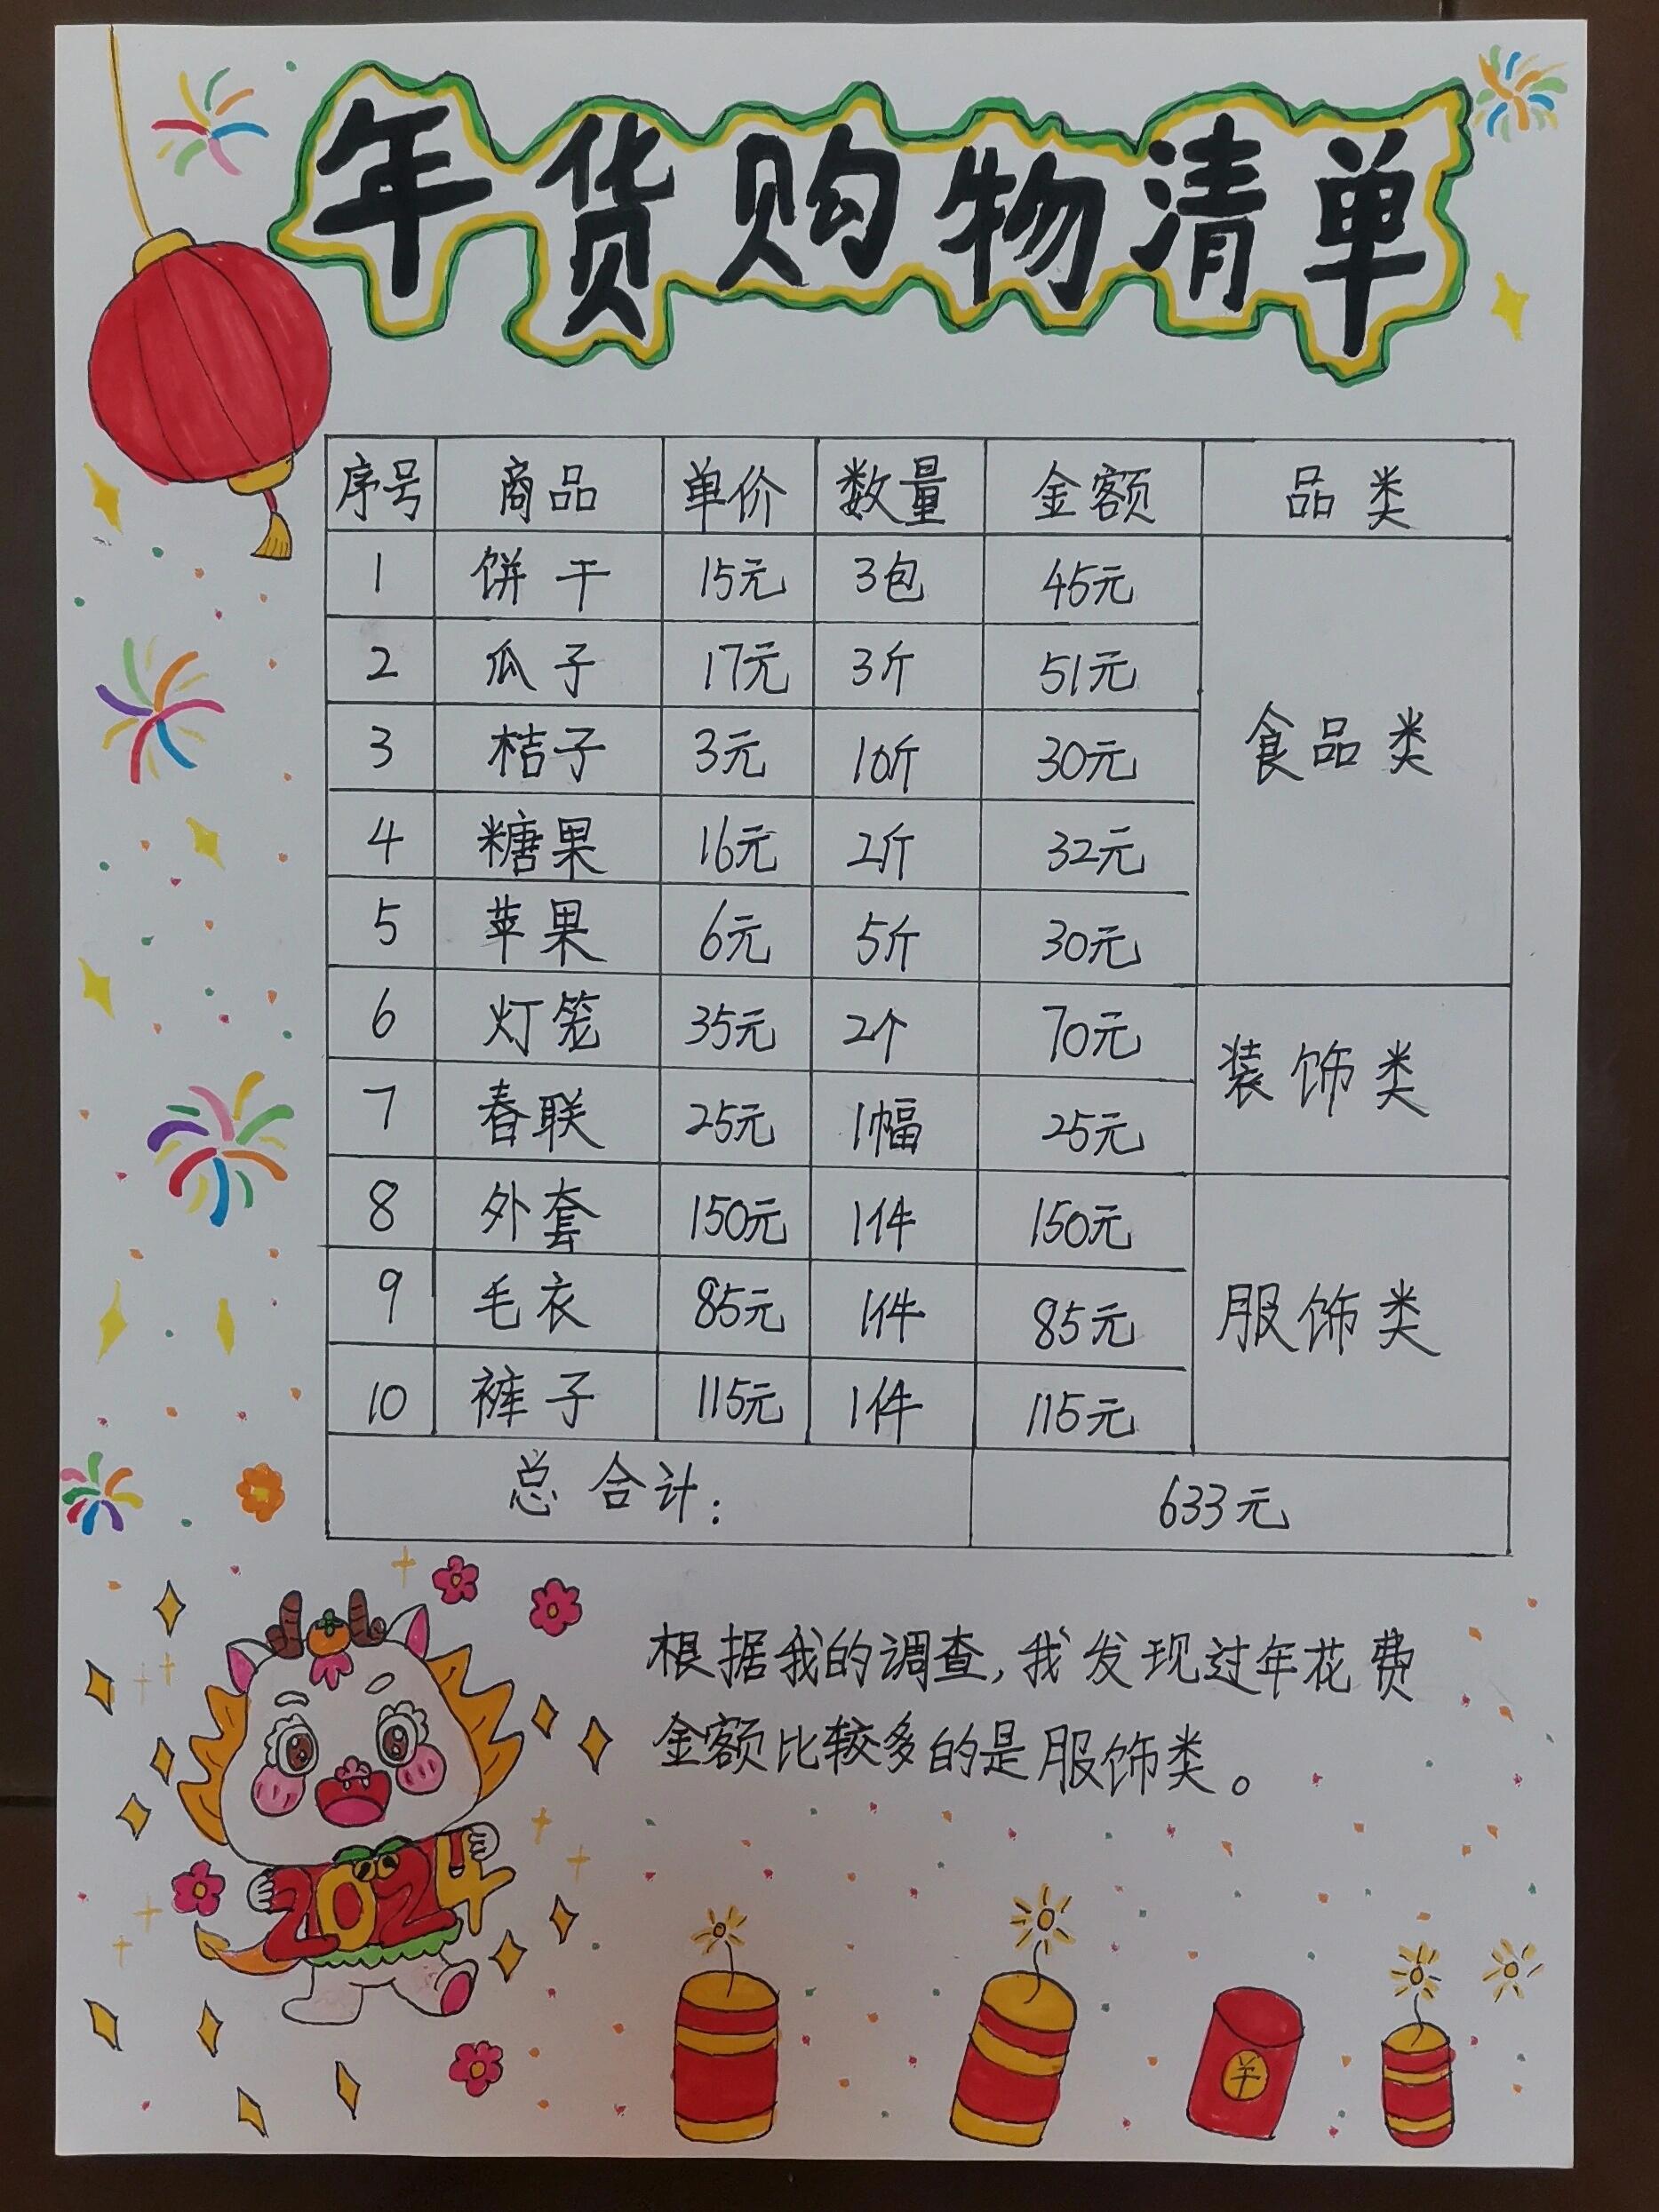 年货购物清单
序号 商品 单价 数量 金额 品类
1 饼干 15元 3包 45元 食品类
2 瓜子 17元 3斤 51元
3 桔子 3元 10斤 30元
4 糖果 16元 2斤 32元
5 苹果 6元 5斤 30元
6 灯笼 35元 2个 70元 装饰类
7 春联 25元 1幅 25元
8 外套 150元 1件 150元 服饰类
9 毛衣 85元 1件 85元
10 裤子 115元 1件 115元
总合计: 633元
根据我的调查,我发现过年花费
金额比较多的是服饰类。
2024